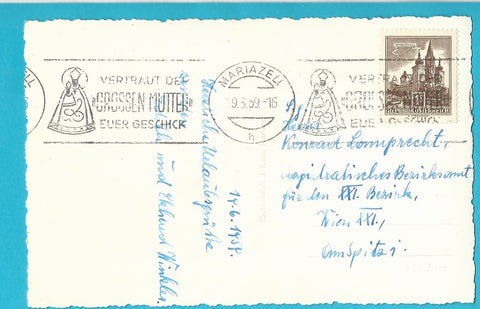 VERTRAUT DER
"GROSSEN MUTTER"
EUER GESCHICK
MARIAZELL
9.6.59.-16
h
VERTRAUT DER
EUER GESCHICK
Herzliche Urlaubsgrüße
und Ekhard Winkler
14.6.1959.
Herrn
Konrad Lamprecht
Magistratisches Bezirksamt
für den XXI. Bezirk,
Wien XXI.,
Am Spitz 1.